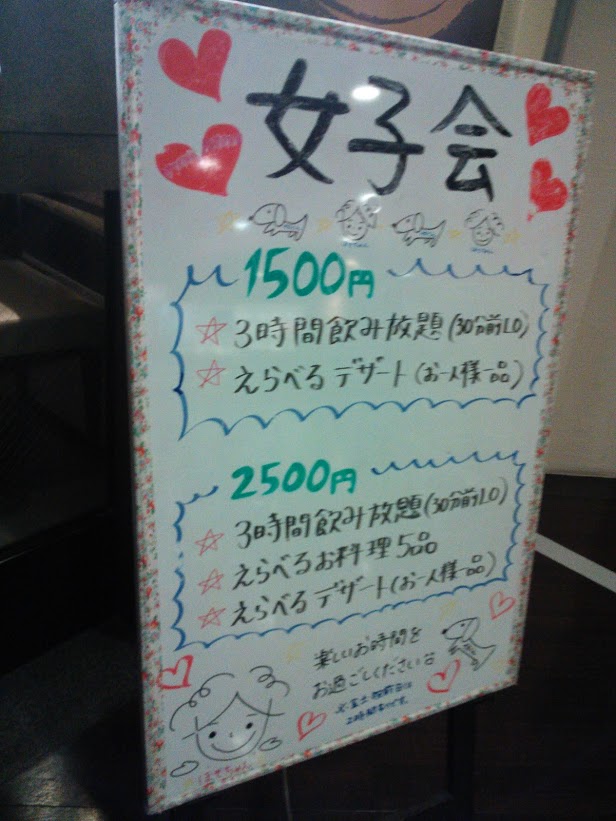 女子会
1500円
☆3時間飲み放題(30分前LO)
☆えらべるデザート(お一人様一品)
2500円
☆3時間飲み放題(30分前LO)
☆えらべるお料理5品
☆えらべるデザート(お一人様一品)
楽しいお時間を
お過ごしください
※金土祝前日は
2時間制です。